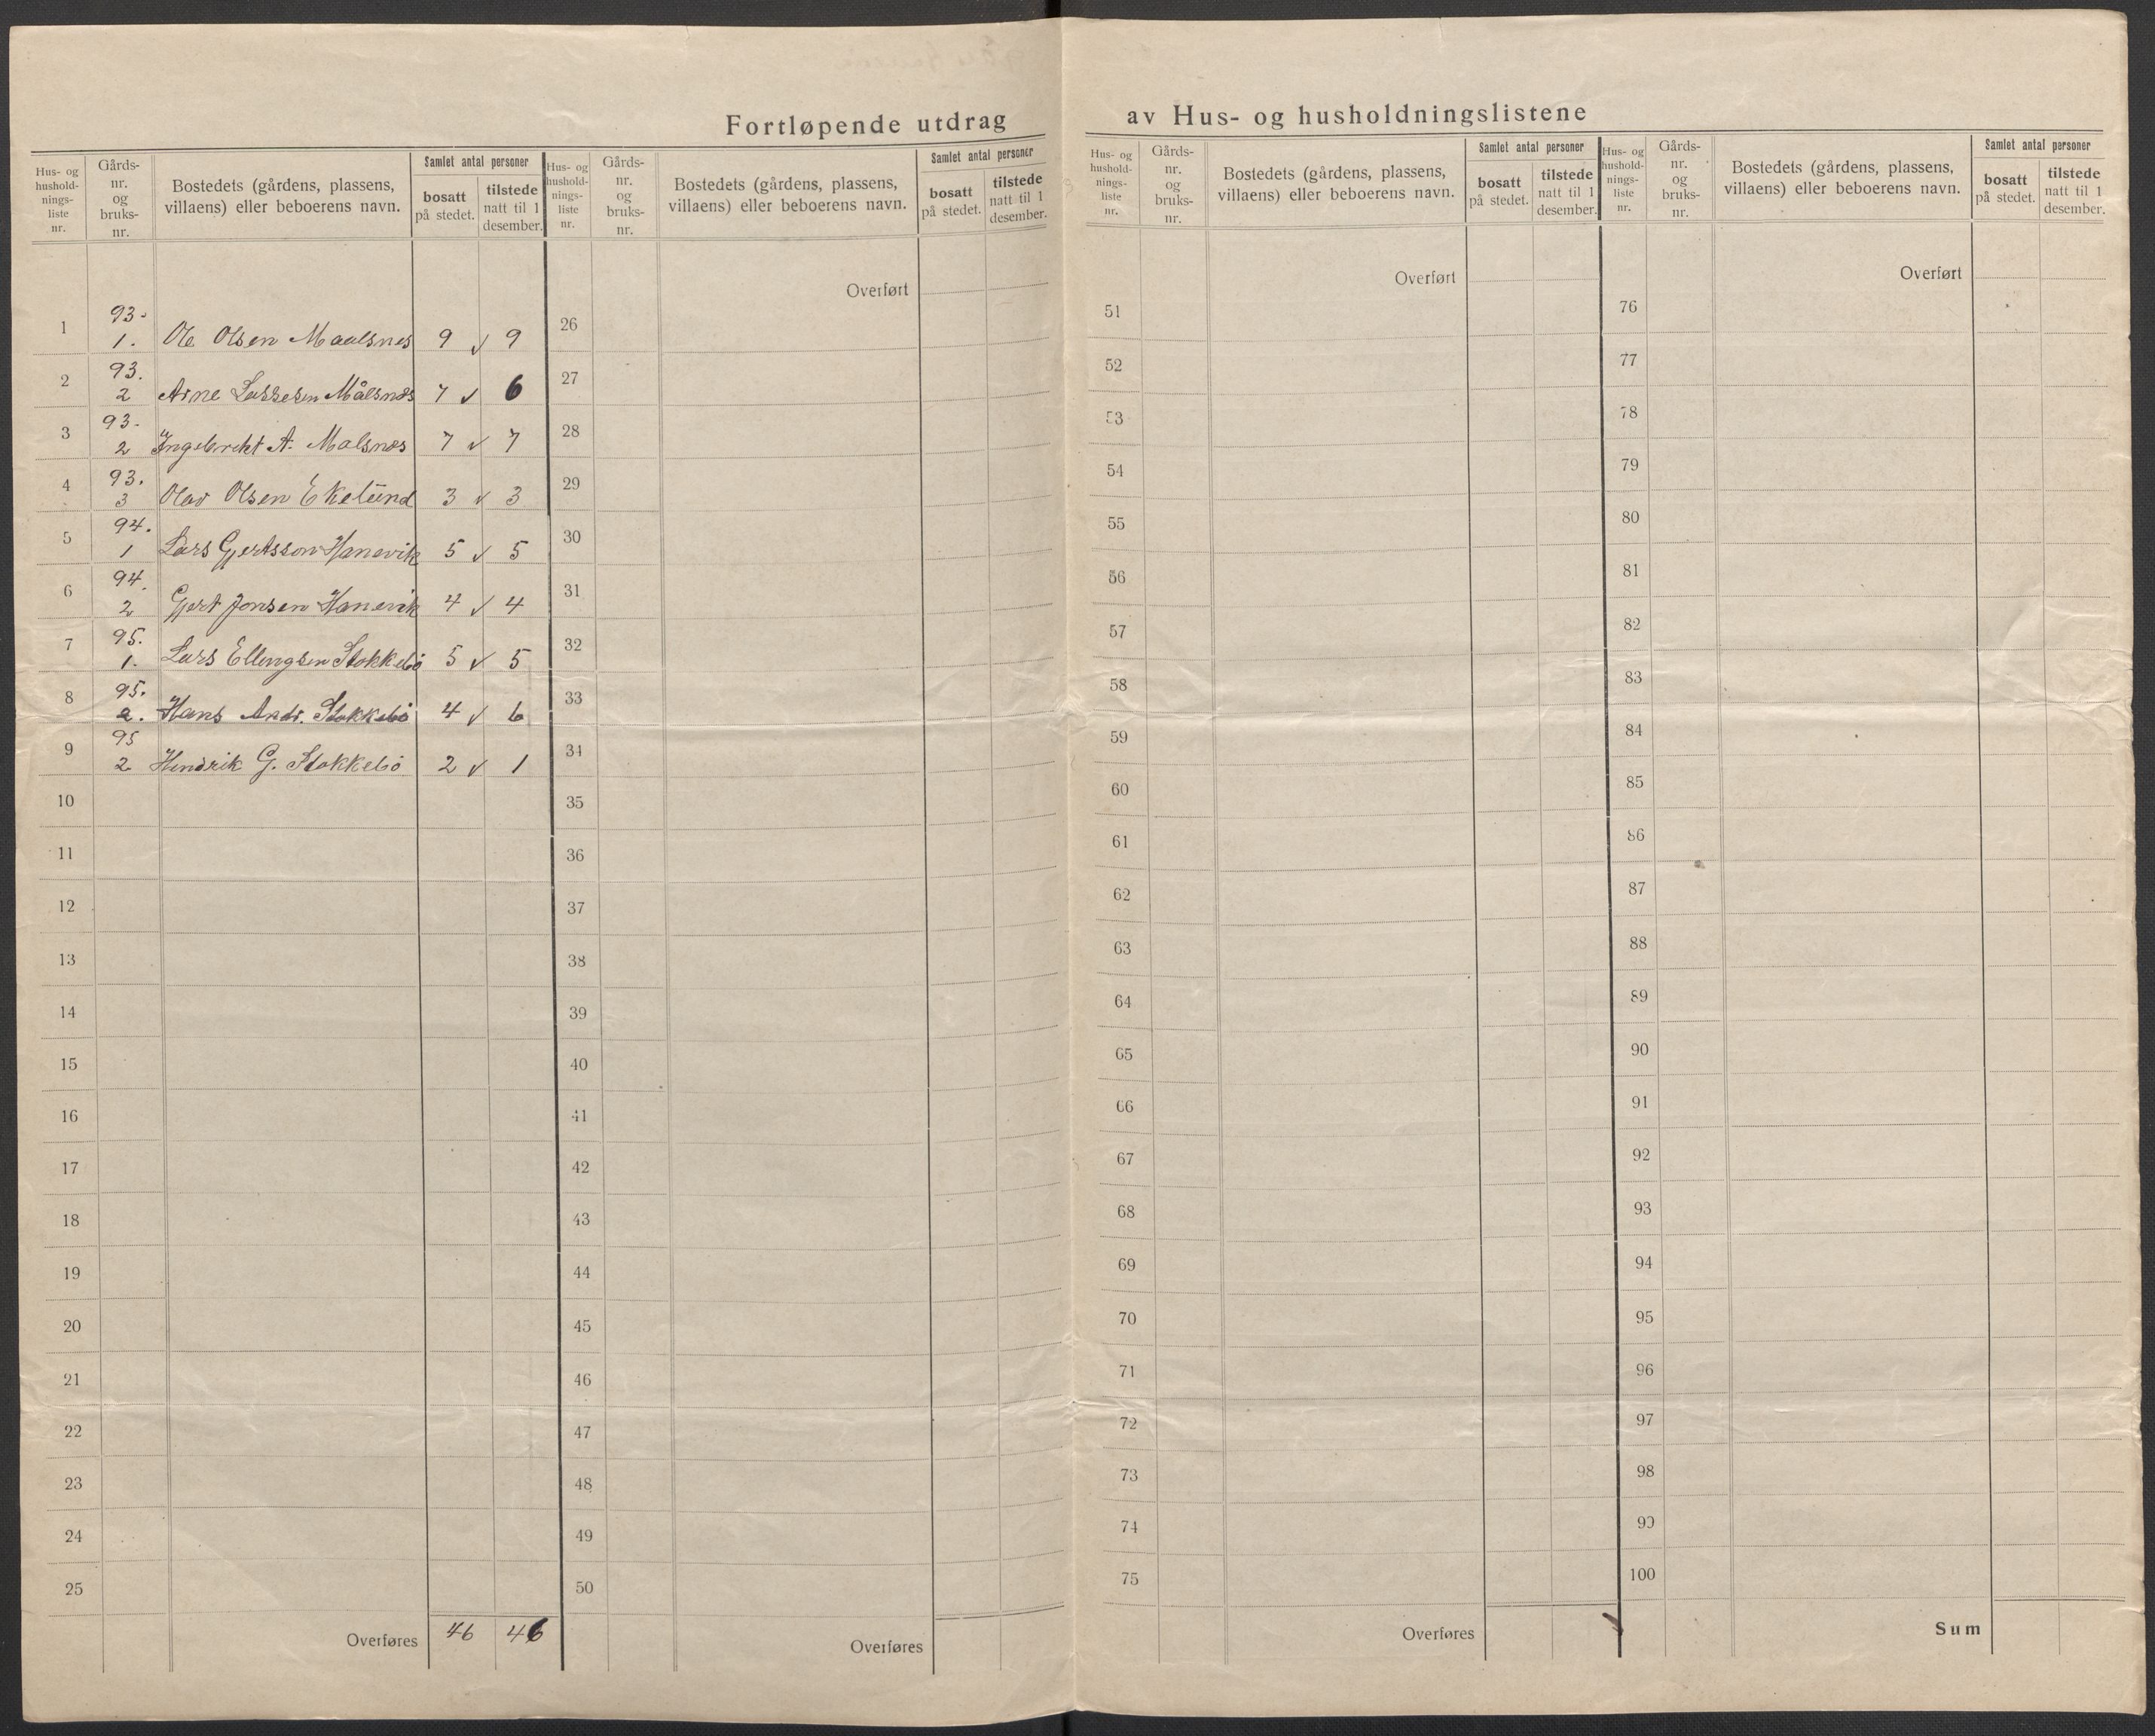 Fortløpende utdrag av Hus- og husholdningslistene
Hus- og hushold-nings-liste nr. | Gårds-nr. og bruks-nr. | Bostedets (gårdens, plassens, villaens) eller beboerens navn. | Samlet antal personer | bosatt på stedet. | tilstede natt til 1 desember.
1 | 93. 1. | Ole Olsen Maalsnes | 9 ✓ | 9
2 | 93. 2 | Arne Lassesen Målsnæs | 7 ✓ | 6
3 | 93. 2 | Ingebrekt A. Malsnæs | 7 ✓ | 7
4 | 93. 3 | Olav Olsen Ekelünd | 3 ✓ | 3
5 | 94. 1 | Lars Gjertsson Hanevik | 5 ✓ | 5
6 | 94. 2 | Gjert Jonsen Hanevik | 4 ✓ | 4
7 | 95. 1. | Lars Ellingsen Stokkebö | 5 ✓ | 5
8 | 95. 2. | Hans Andr. Stokkebö | 4 ✓ | 6
9 | 95 2 | Hendrik G. Stokkebö | 2 ✓ | 1
10
11
12
13
14
15
16
17
18
19
20
21
22
23
24
25
Overføres | 46 | 46
Hus- og hushold-nings-liste nr. | Gårds-nr. og bruks-nr. | Bostedets (gårdens, plassens, villaens) eller beboerens navn. | Samlet antal personer | bosatt på stedet. | tilstede natt til 1 desember.
Overført
26
27
28
29
30
31
32
33
34
35
36
37
38
39
40
41
42
43
44
45
46
47
48
49
50
Overføres
Hus- og hushold-nings-liste nr. | Gårds-nr. og bruks-nr. | Bostedets (gårdens, plassens, villaens) eller beboerens navn. | Samlet antal personer | bosatt på stedet. | tilstede natt til 1 desember.
Overført
51
52
53
54
55
56
57
58
59
60
61
62
63
64
65
66
67
68
69
70
71
72
73
74
75
Overføres
Hus- og hushold-nings-liste nr. | Gårds-nr. og bruks-nr. | Bostedets (gårdens, plassens, villaens) eller beboerens navn. | Samlet antal personer | bosatt på stedet. | tilstede natt til 1 desember.
Overført
76
77
78
79
80
81
82
83
84
85
86
87
88
89
90
91
92
93
94
95
96
97
98
99
100
Sum